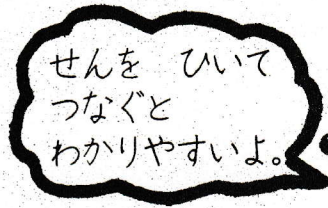 せんを　ひいて
つなぐと
わかりやすいよ。